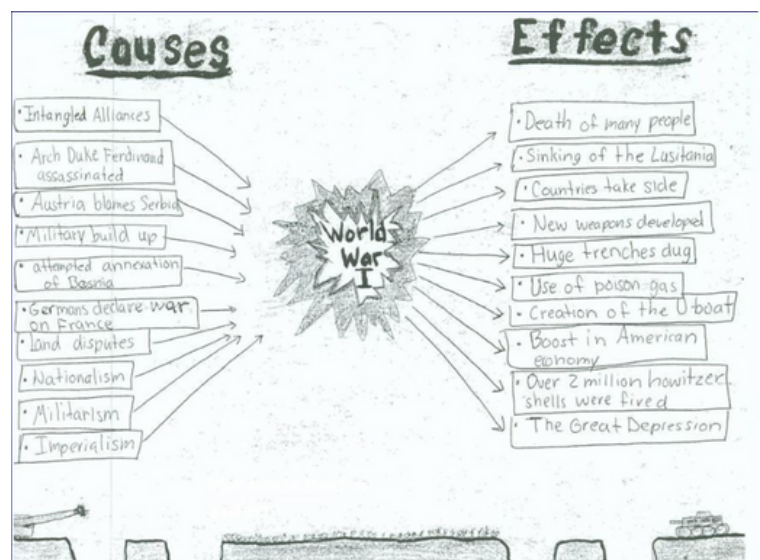 Causes
• Entangled Alliances
• Arch Duke Ferdinand
assassinated
• Austria blames Serbia
• Military build up
• attempted annexation
of Bosnia
• Germans declare war
on France
• land disputes
• Nationalism
• Militarism
• Imperialism
World
War
I
Effects
• Death of many people
• Sinking of the Lusitania
• Countries take side
• New weapons developed
• Huge trenches dug
• Use of poison gas
• Creation of the U boat
• Boost in American
economy
• Over 2 million howitzer
shells were fired
• The Great Depression